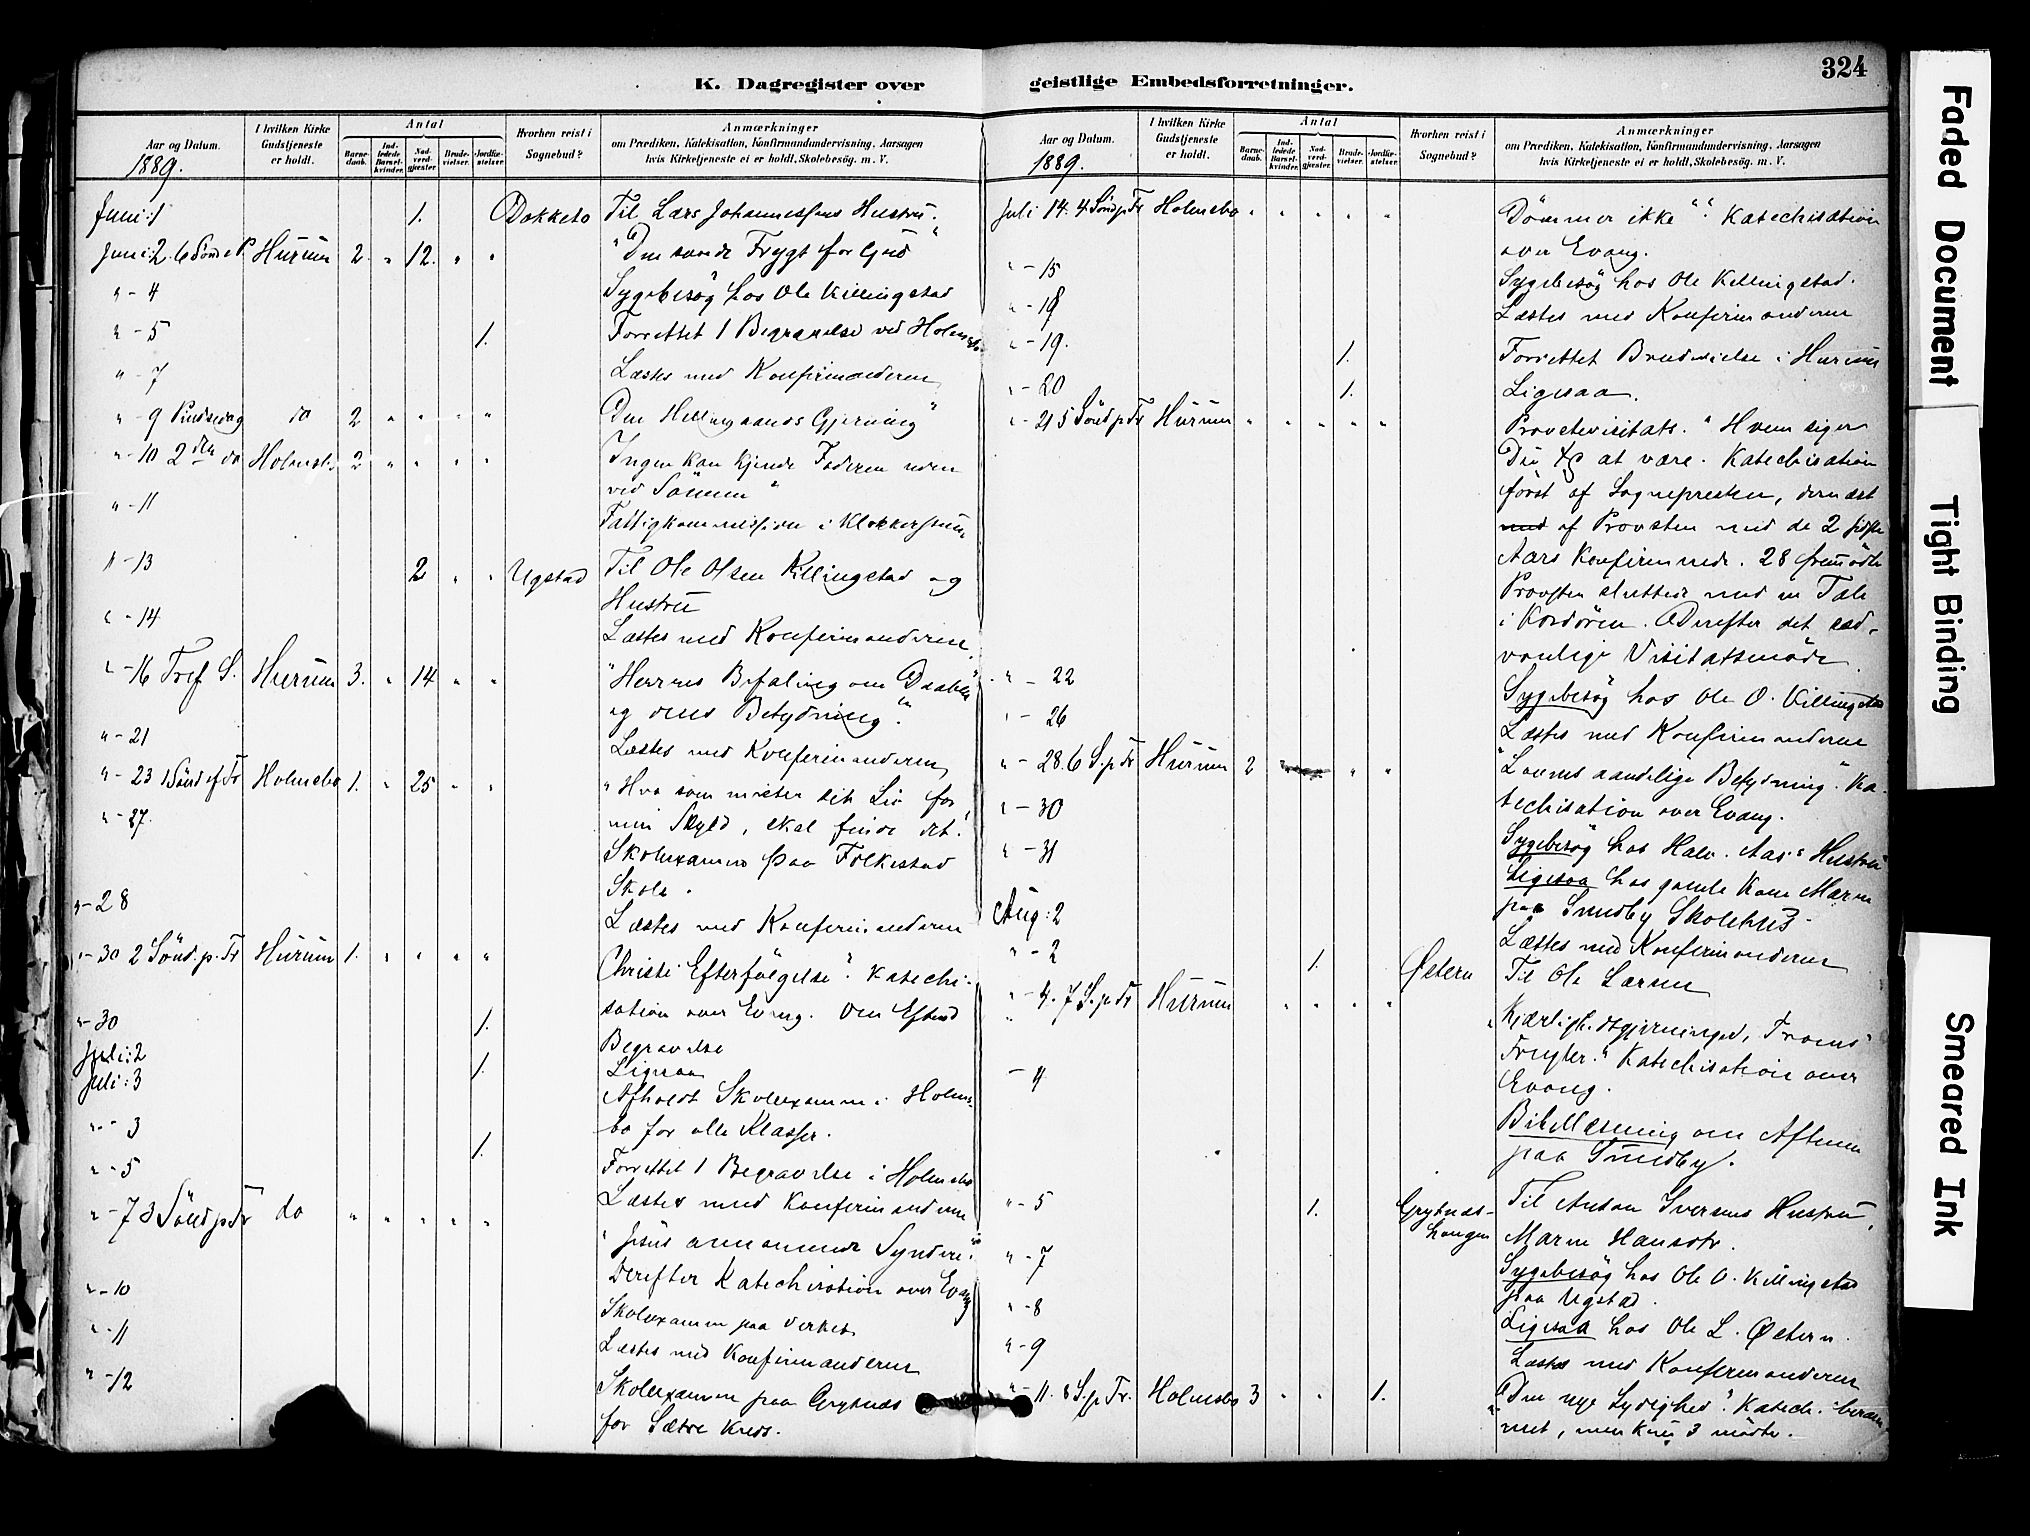 324
K. Dagregister over geistlige Embedsforretninger.
Aar og Datum.
I hvilken Kirke Gudstjeneste er holdt.
Antal
Barnedaab.
Indledede Barselkvinder.
Nadverdgjæster.
Brudevielser.
Jordfæstelser.
Hvorhen reist i Sognebud?
Anmærkninger
om Prædiken, Katekisation, Konfirmandundervisning, Aarsagen
hvis Kirketjeneste ei er holdt, Skolebesøg. m. V.
1889.
Juni: 1 1. Dokketo Til Lars Johannessens Hustru.
Juni: 2. 6 Sönd e P Hurum 2. " 12. " " "Den sande Frygt for Gud"
" - 4 Sygebesög hos Ole Killingstad
" - 5 1. Forrettet 1 Begravelse ved Holmsbo
" - 7 Læstes med Konfirmanderne
" - 9 Pindsedag do 2 " " " " Den Helligaands Gjerning"
" - 10 2den do Holmsb. 2 " " " " Ingen kan kjende Faderen uden
ved Sönnen"
" - 11 Fattigkommission i Klokkerstuen
" - 13 2 " " Ugstad Til Ole Olsen Killingstad og
Hustru
" - 14 Læstes med Konfirmanderne
" - 16 Tref S. Hurum 3. " 14 " " "Herrens Befaling om Daaben
og dens Betydning".
" - 21 Læstes med Konfirmanderne
" - 23 1 Sönd ef Tr Holmsbo 1. " 25 " " "Hvo som mister sit Liv for
min Skyld, skal finde det".
" - 27. Skolexamen paa Folkestad
Skole.
" - 28 Læstes med Konfirmanderne
" - 30 2 Sönd. p. Tr Hurum 1. " " " " Christi Efterfölgelse". Katechi-
sation over Evang. Om Efterm
" - 30 1. Begravelse
Juli: 2 1. Ligesaa
Juli: 3 Afholdt Skolexamen i Holms-
bo for alle Klasser.
" - 3 1. Forrettet 1 Begravelse i Holmsbo
" - 5 Læstes med Konfirmanderne
" - 7 3 Sönd p Tr do " " " " " "Jesus annammede Syndere"
Derefter Katechisation over Evang
" - 10 Skolexamen paa Verket
" - 11 Læstes med Konfirmanderne
" - 12 Skolexamen paa Grytnæs
for Sætre Kreds.
Aar og Datum.
I hvilken Kirke Gudstjeneste er holdt.
Antal
Barnedaab.
Indledede Barselkvinder.
Nadverdgjæster.
Brudevielser.
Jordfæstelser.
Hvorhen reist i Sognebud?
Anmærkninger
om Prædiken, Katekisation, Konfirmandundervisning, Aarsagen
hvis Kirketjeneste ei er holdt, Skolebesøg. m. V.
1889.
Juli 14. 4 Sönd p Tr Holmsbo " " " " " Dömmer ikke". Katechisation
over Evang.
" - 15 Sygebesög hos Ole Killingstad.
" - 18 Læstes med Konfirmanderne
" - 19. 1. Forrettet Brudevielse i Hurum
" - 20 1. Ligesaa.
" - 21 5 Sönd p Tr Hurum " " " " " Provstevisitats. "Hvem siger
Du at være. Katechisation
först af Sognepresten, dernæst
med af Provsten med de 2 sidste
Aars Konfirmerede. 28 fremmödte
Provsten sluttede med en Tale
i Kordören. Derefter det sæd-
vanlige Visitatsmöde.
" - 22 Sygebesög hos Ole O. Killingstad
" - 26 Læstes med Konfirmanderne
" - 28. 6 S. p Tr Hurum 2 " " "Lovens aandelige Betydning". Ka-
techisation over Evang.
" - 30 Sygebesög hos Halv. Aas's Hustru
" - 31 Ligesaa hos gamle Kone Maren
paa Smedby Skolehus.
Aug: 2 Læstes med Konfirmanderne
" - 2 1. Østern Til Ole Larsen
" - 4. 7 S. p. Tr Hurum " " " " "Kjærlighedsgjerninger, Troens
Frugter." Katechisation over
Evang.
- 4 Bibellæsning om Aftenen
paa Smedby.
" - 5 1. Grytnæs-
haugen Til Anton Iversens Hustru,
Maren Hansdtr.
" - 7 Sygebesög hos Ole O. Killingstad
paa Ugstad.
" - 8 Ligesaa hos Ole L. Østern.
" - 9 Læstes med Konfirmanderne
" - 11. 8 S. p Tr. Holmsbo 3 " " 1. "Den nye Lydighed". Katech. beram-
met, men Kun 3 mödte.
Faded Document
Tight Binding
Smeared Ink